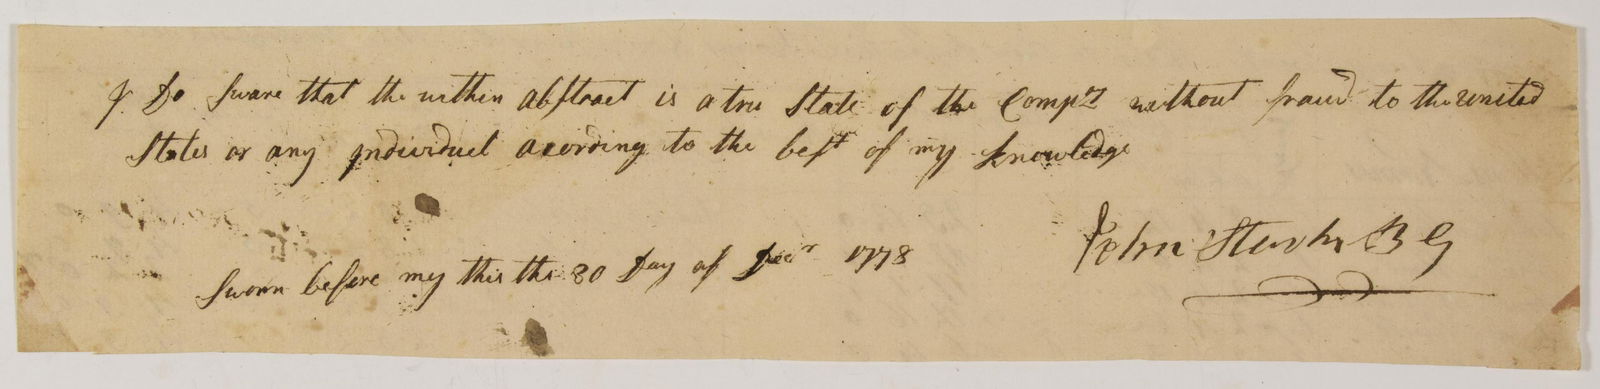 I Do Sware that the within abstract is a true State of the Compy without fraud to the united
States or any individuel acording to the best of my knowledge
John Stark B G
Sworn before my this the 30 Day of Decr 1778